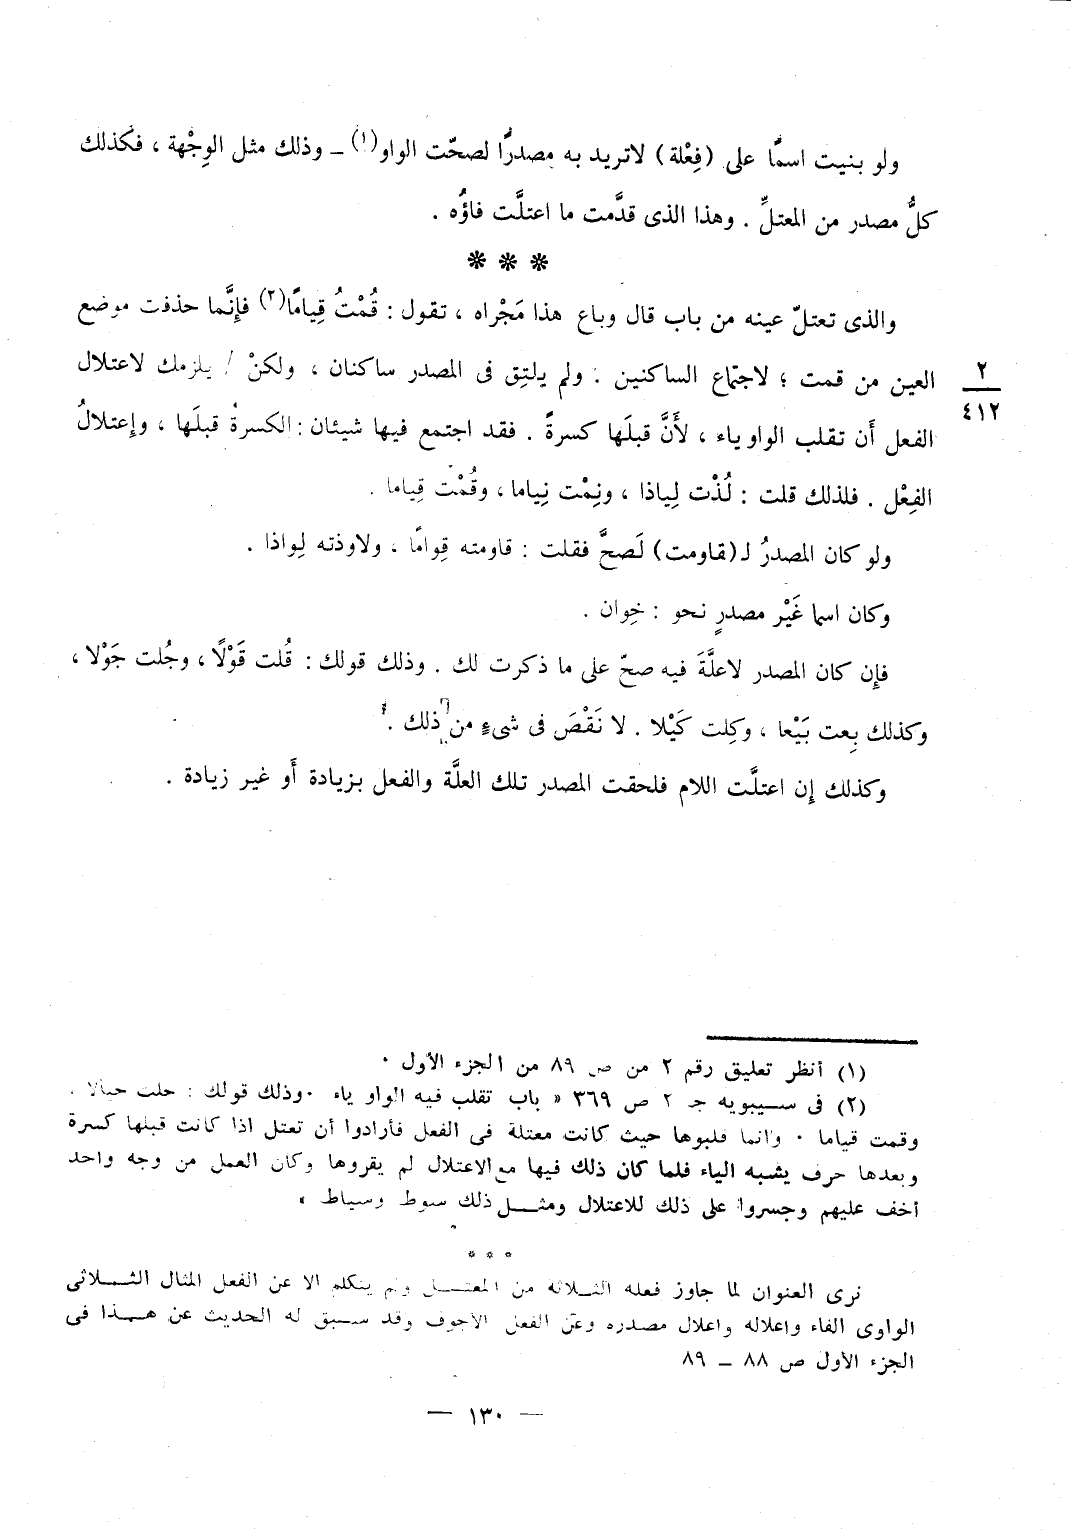 ولو بنيت اسمًا على (فِعْلة) لاتريد به مصدرًا لصحّت الواو(١) ــ وذلك مثل الوِجْهة ، فكذلك
كلُّ مصدر من المعتلِّ . وهذا الذى قدَّمت ما اعتلَّت فاؤُه .
❋ ❋ ❋
والذى تعتلّ عينه من باب قال وباع هذا مَجْراه ، تقول : قُمْتُ قِيامًا(٢) فإِنَّما حذفت موضع
العين من قمت ؛ لاجتماع الساكنين . ولم يلتِق فى المصدر ساكنان ، ولكنْ / يلزمك لاعتلال
٢
٤١٢
الفعل أَن تقلب الواو ياء ، لأَنَّ قبلَها كسرةً . فقد اجتمع فيها شيئان : الكسرةُ قبلَها ، وإِعتلالُ
الفِعْل . فلذلك قلت : لُذْت لِياذا ، ونِمْت نِياما ، وقُمْت قِياما .
ولو كان المصدرُ لـ(قاومت) لَصحَّ فقلت : قاومته قِوامًا ، ولاوذته لِواذا .
وكان اسما غَيْر مصدرٍ نحو : خِوان .
فإِن كان المصدر لاعلَّةَ فيه صحّ على ما ذكرت لك . وذلك قولك : قُلت قَوْلًا ، وجُلت جَوْلا ،
وكذلك بِعت بَيْعا ، وكِلت كَيْلا . لا نَقْصَ فى شىءٍ من ذلك .
وكذلك إِن اعتلَّت اللام فلحقت المصدر تلك العلَّة والفعل بزيادة أَو غير زيادة .
(١) أنظر تعليق رقم ٢ من ص ٨٩ من الجزء الأول ٠
(٢) فى سيبويه جـ ٢ ص ٣٦٩ « باب تقلب فيه الواو ياء ٠ وذلك قولك : حلت حيالا .
وقمت قياما ٠ وانما قلبوها حيث كانت معتلة فى الفعل فأرادوا أن تعتل اذا كانت قبلها كسرة
وبعدها حرف يشبه الياء فلما كان ذلك فيها مع الاعتلال لم يقروها وكان العمل من وجه واحد
أخف عليهم وجسروا على ذلك للاعتلال ومثل ذلك سوط وسياط »
* * *
نرى العنوان لما جاوز فعله الثلاثة من المعتل ولم يتكلم الا عن الفعل المثال الثلاثى
الواوى الفاء واعلاله واعلال مصدره وعن الفعل الأجوف وقد سبق له الحديث عن هذا فى
الجزء الأول ص ٨٨ ــ ٨٩
— ١٣٠ —